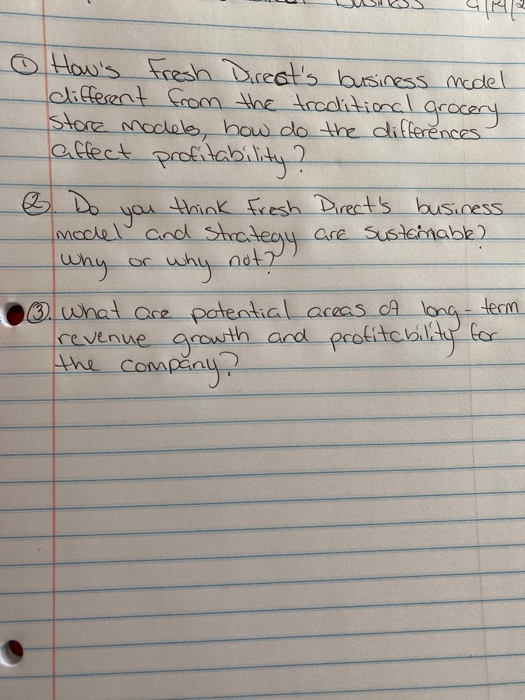 Business 9/14/2
① How's Fresh Direct's business model
different from the traditional grocery
store models, how do the differences
affect profitability?
②. Do you think Fresh Direct's business
model and strategy are sustainable?
Why or why not?
③. What are potential areas of long-term
revenue growth and profitability for
the company?